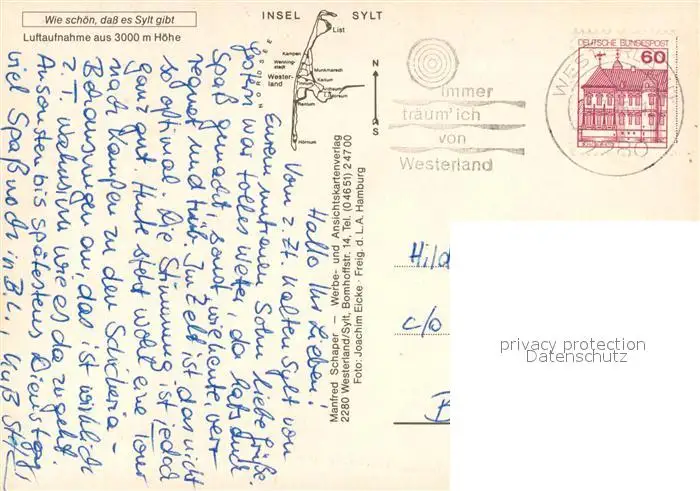 Wie schön, daß es Sylt gibt
Luftaufnahme aus 3000 m Höhe
INSEL SYLT
List
Kampen
Wenning-
stedt
Munkmarsch
Wester-
land
Keitum
Rantum
Morsum
Hörnum
NORDSEE
N
S
immer
träum' ich
von
Westerland
DEUTSCHE BUNDESPOST
60
Manfred Schaper — Werbe- und Ansichtskartenverlag
2280 Westerland/Sylt, Bomhoffstr. 14, Tel. (0 46 51) 2 47 00
Foto: Joachim Eicke · Freig. d. L.A. Hamburg
Hallo Ihr Lieben,
Vom z. Zt. kalten Sylt von
Eurem untreuen Sohn liebe Grüße.
Gestern war tolles Wetter, da hat's auch
Spaß gemacht, sonst wie heute, ver-
regnet und trüb. Im Zelt ist das nicht
so optimal. Die Stimmung ist jedoch
ganz gut. Heute steht wohl eine Tour
nach Kampen zu den Schickeria-
Behausungen an, das ist wirklich
z. T. Wahnsinn wie es da zugeht.
Ansonsten bis spätestens Dienstag,
viel Spaß noch in B.L., Kuß
Hild
c/o
B
privacy protection
Datenschutz